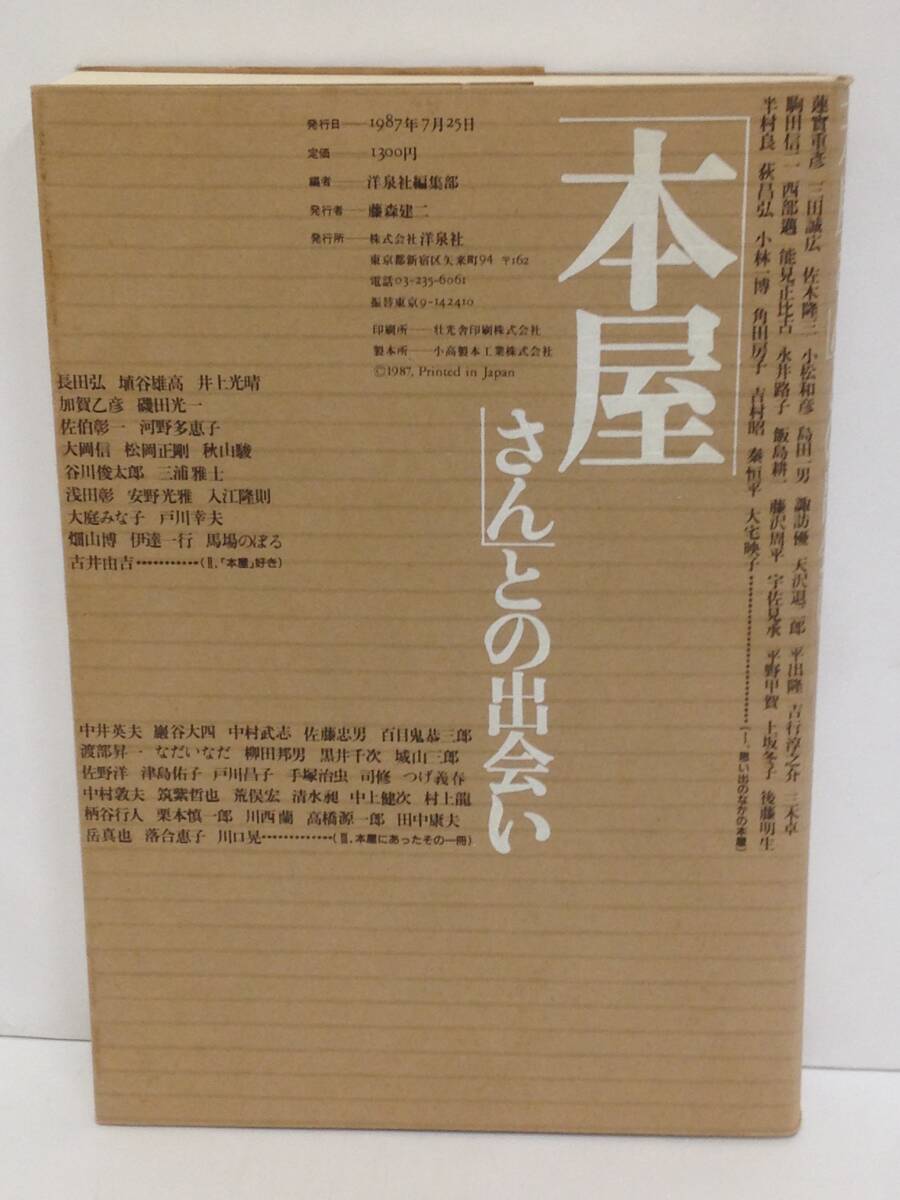 「本屋
さん」との出会い
発行日──1987年7月25日
定価──1300円
編者──洋泉社編集部
発行者──藤森建二
発行所──株式会社洋泉社
東京都新宿区矢来町94 〒162
電話03-235-6061
振替東京9-142410
印刷所──壮光舎印刷株式会社
製本所──小高製本工業株式会社
©1987, Printed in Japan
蓮實重彦 三田誠広 佐木隆三 小松和彦 島田一男 諏訪優 天沢退二郎 平出隆 吉行淳之介 三木卓
駒田信二 西部邁 能見正比古 永井路子 飯島耕一 藤沢周平 宇佐見承 平野甲賀 上坂冬子 後藤明生
半村良 荻昌弘 小林一博 角田房子 吉村昭 秦恒平 大宅映子…………………(Ⅰ.思い出のなかの本屋)
長田弘 埴谷雄高 井上光晴
加賀乙彦 磯田光一
佐伯彰一 河野多恵子
大岡信 松岡正剛 秋山駿
谷川俊太郎 三浦雅士
浅田彰 安野光雅 入江隆則
大庭みな子 戸川幸夫
畑山博 伊達一行 馬場のぼる
古井由吉…………(Ⅱ.「本屋」好き)
中井英夫 巖谷大四 中村武志 佐藤忠男 百目鬼恭三郎
渡部昇一 なだいなだ 柳田邦男 黒井千次 城山三郎
佐野洋 津島佑子 戸川昌子 手塚治虫 司修 つげ義春
中村敦夫 筑紫哲也 荒俣宏 清水昶 中上健次 村上龍
柄谷行人 栗本慎一郎 川西蘭 高橋源一郎 田中康夫
岳真也 落合恵子 川口晃…………(Ⅲ.本屋にあったその一冊)